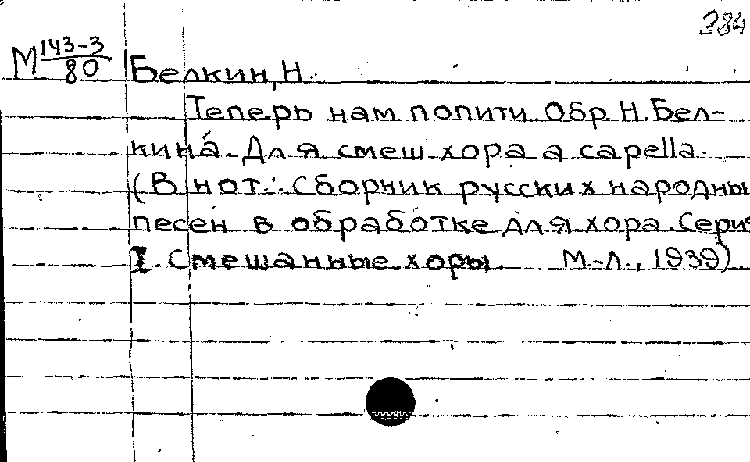 384
М 143-3
80
Белкин, Н.
Теперь нам попити. Обр. Н. Бел-
кина. Для смеш. хора a capella.
(В нот.: Сборник русских народны
песен в обработке для хора. Сери
I. Смешанные хоры. М.-Л., 1939)